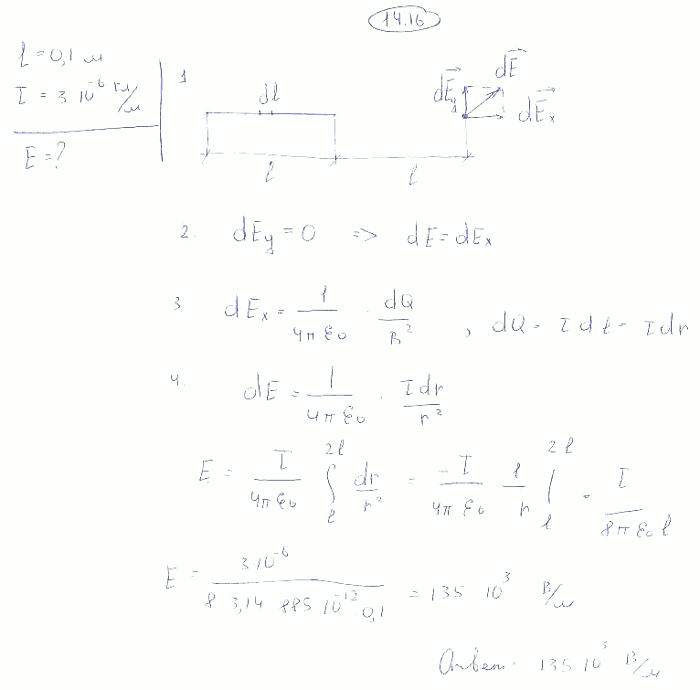 14.16
l = 0,1 м
τ = 3 10⁻⁶ Кл/м
E = ?
1
dl
dE⃗y
dE⃗
dE⃗x
l
l
2. dEy = 0 => dE = dEx
3 dEx = 1/(4π ε₀) · dQ/R² , dQ = τ dl = τ dr
4. dE = 1/(4π ε₀) · τ dr/r²
E = τ/(4π ε₀) ∫ₗ²ˡ dr/r² = -τ/(4π ε₀) 1/r |ₗ²ˡ = τ/(8π ε₀ l)
E = 3 10⁻⁶/(8 3,14 885 10⁻¹² 0,1) = 135 10³ В/м
Ответ. 135 10³ В/м